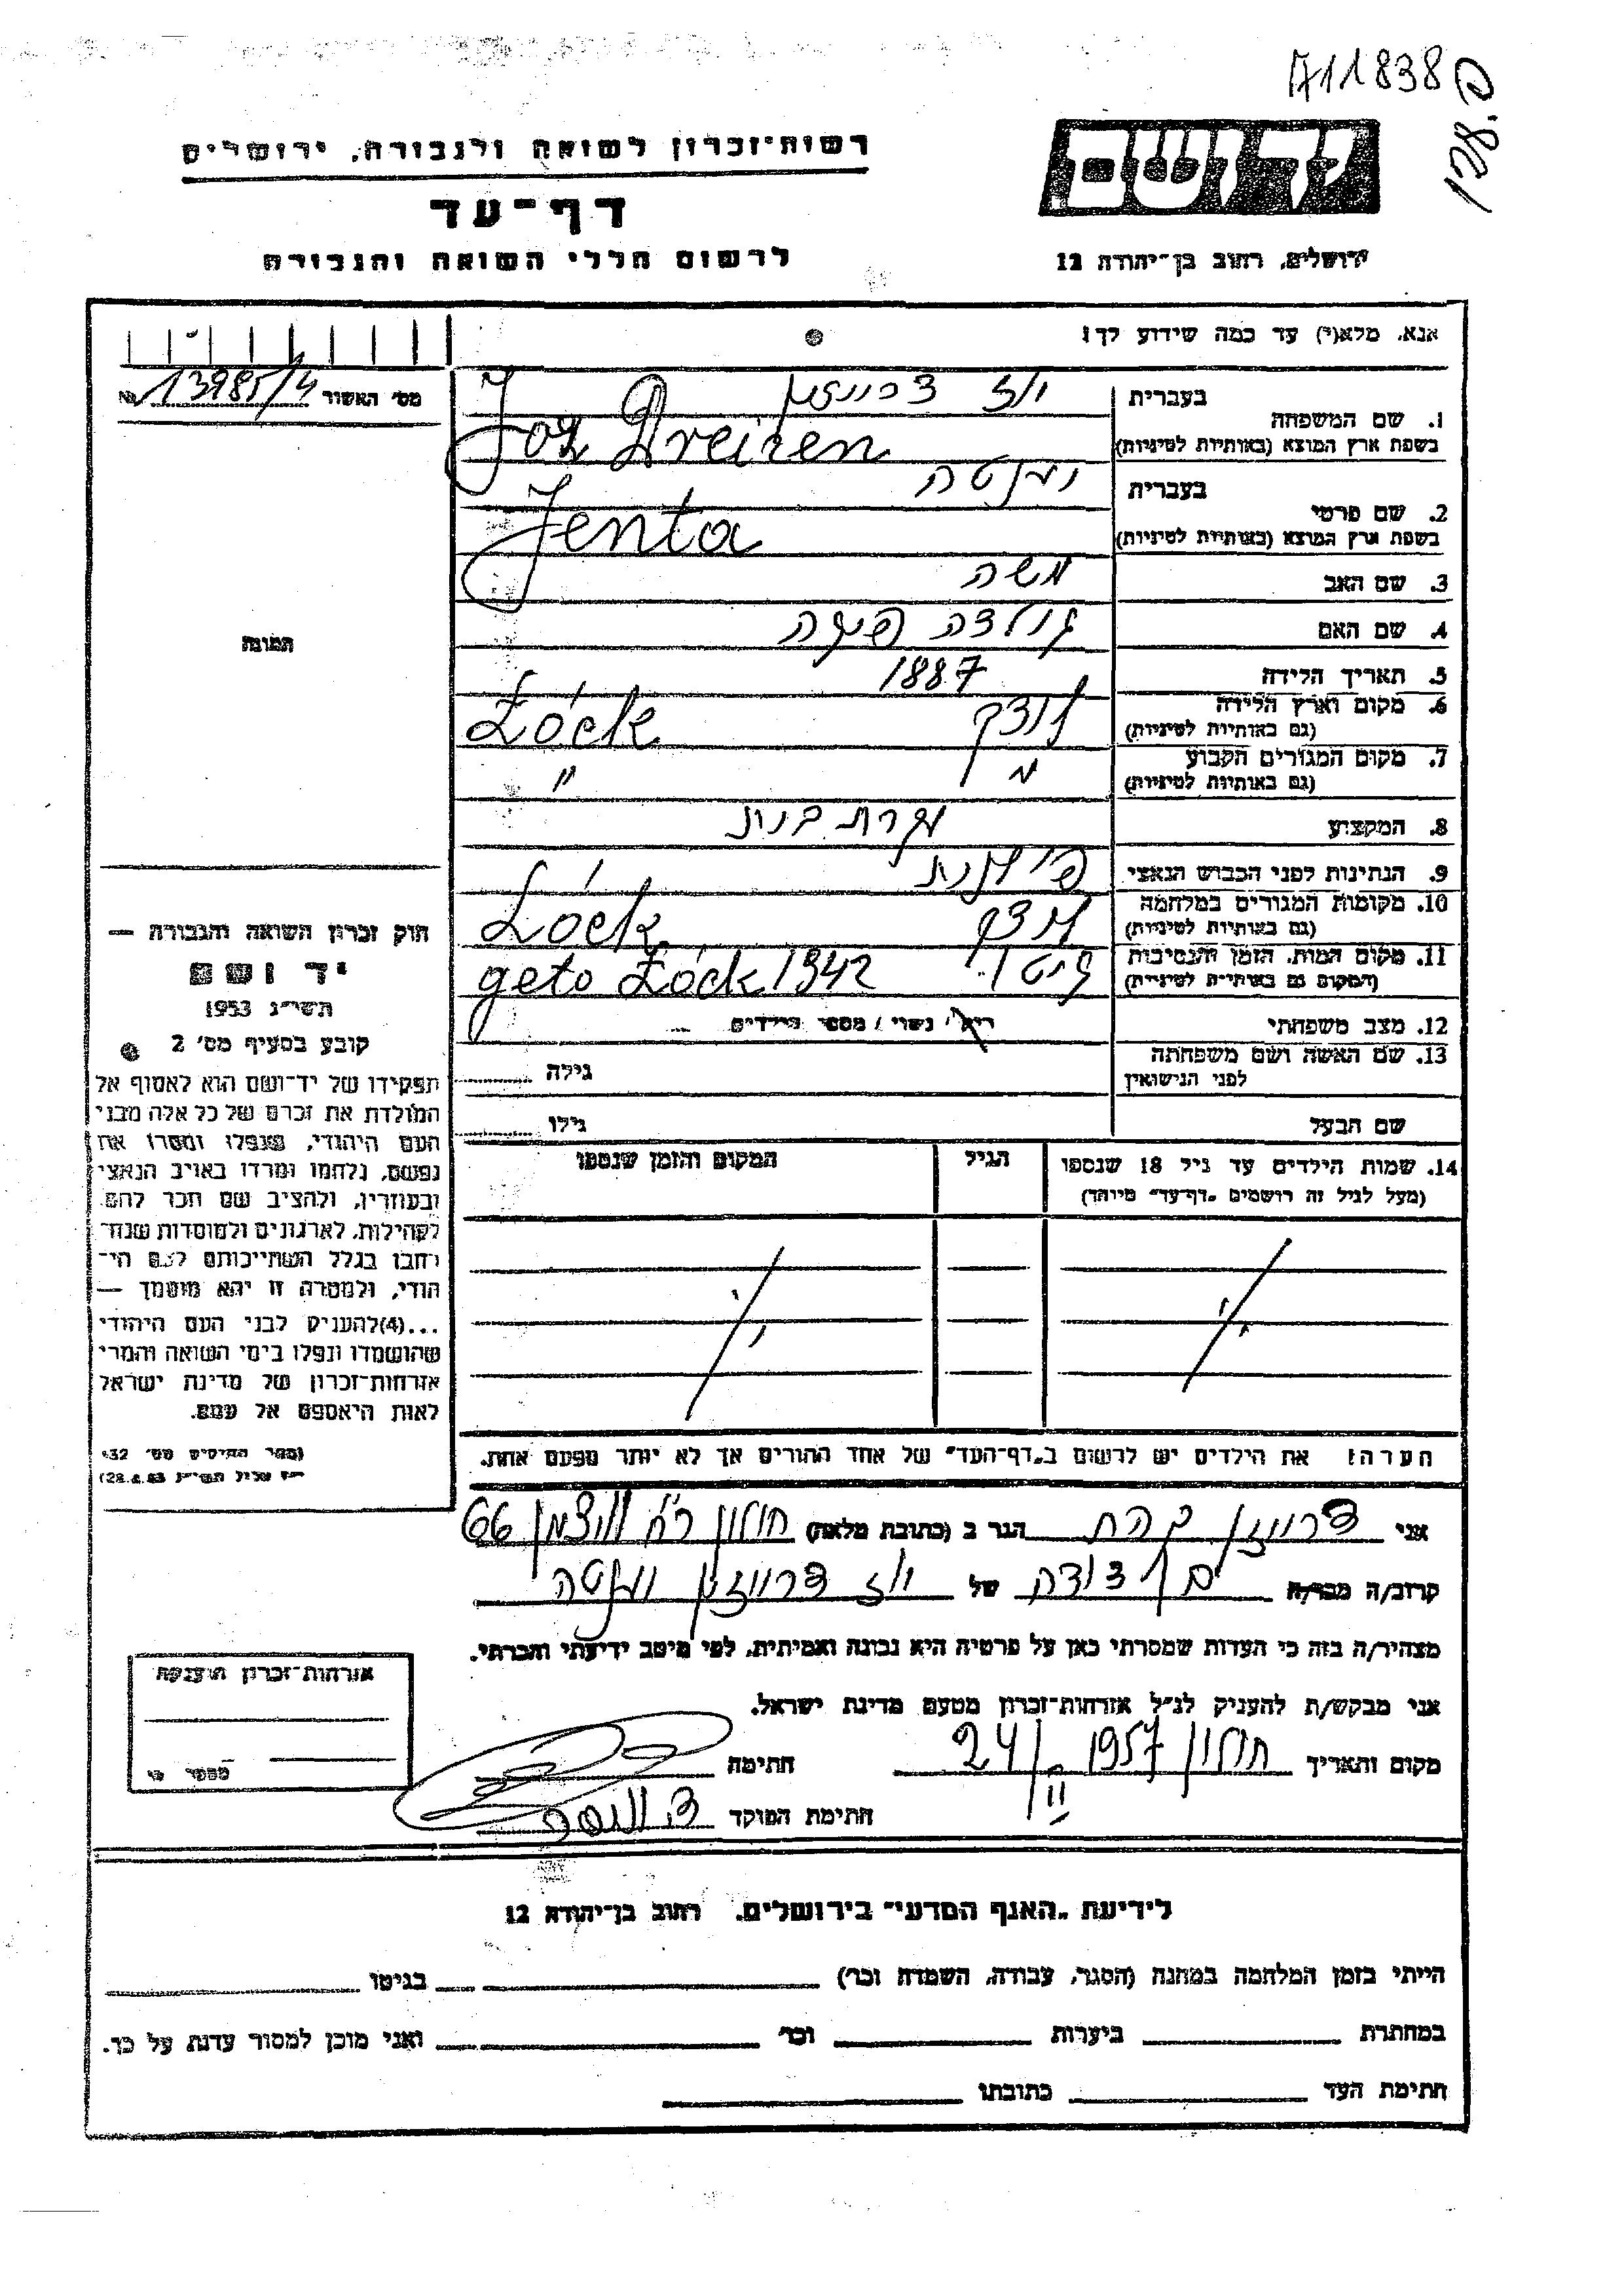 A11838
רשות־זכרון לשואה ולגבורה, ירושלים
יד ושם
דף־עד
לרשום חללי השואה והגבורה
ירושלים, רחוב בן־יהודה 12
אנא, מלא(י) עד כמה שידוע לך!
מס׳ האשור 13985/4 №
1. שם המשפחה
בעברית
בשפת ארץ המוצא (באותיות לטיניות) Joz Dreizen
2. שם פרטי
בעברית יענטה
בשפת ארץ המוצא (באותיות לטיניות) Jenta
3. שם האב משה
4. שם האם גולדה
5. תאריך הלידה 1887
6. מקום וארץ הלידה (גם באותיות לטיניות) לודז׳ Łóck
7. מקום המגורים הקבוע (גם באותיות לטיניות) "
8. המקצוע עקרת בית
9. הנתינות לפני הכבוש הנאצי פולנית
10. מקומות המגורים במלחמה (גם באותיות לטיניות) Łóck
11. מקום המות, הזמן והנסיבות (המקום גם באותיות לטיניות) geto Łóck 1942
12. מצב משפחתי רוק/ נשוי / מספר הילדים
13. שם האשה ושם משפחתה לפני הנישואין
גילה
שם הבעל
גילו
14. שמות הילדים עד גיל 18 שנספו
(מעל לגיל זה רושמים "דף־עד" מיוחד)
הגיל
המקום והזמן שנספו
הערה! את הילדים יש לרשום ב"דף־העד" של אחד ההורים אך לא יותר מפעם אחת.
התמונה
חוק זכרון השואה והגבורה —
יד ושם
תשי״ג 1953
קובע בסעיף מס׳ 2
תפקידו של יד־ושם הוא לאסוף אל
המולדת את זכרם של כל אלה מבני
העם היהודי, שנפלו ומסרו את
נפשם, נלחמו ומרדו באויב הנאצי
ובעוזריו, ולהציב שם וזכר להם,
לקהילות, לארגונים ולמוסדות שנח־
רבו בגלל השתייכותם לעם הי־
הודי, ולמטרה זו יהא מוסמך —
...(4)להעניק לבני העם היהודי
שהושמדו ונפלו בימי השואה והמרי
אזרחות־זכרון של מדינת ישראל
לאות היאספם אל עמם.
(ספר החוקים מס׳ 132
אני דרייזן הגר ב (כתובת מלאה) חולון רח׳ ויצמן 66
קרוב/ה מכר/ה בן דודה של יוז דרייזן יענטה
מצהיר/ה בזה כי העדות שמסרתי כאן על פרטיה היא נכונה ואמיתית, לפי מיטב ידיעתי והכרתי.
אני מבקש/ת להעניק לנ״ל אזרחות־זכרון מטעם מדינת ישראל.
מקום ותאריך חולון 1957 24/II חתימה
חתימת הפוקד
אזרחות־זכרון הוענקה
מספר
לידיעת "האגף המדעי" בירושלים, רחוב בן־יהודה 12
הייתי בזמן המלחמה במחנה (הסגר, עבודה, השמדה וכו׳) בגיטו
במחתרת ביערות וכו׳ ואני מוכן למסור עדות על כך.
חתימת העד כתובתו